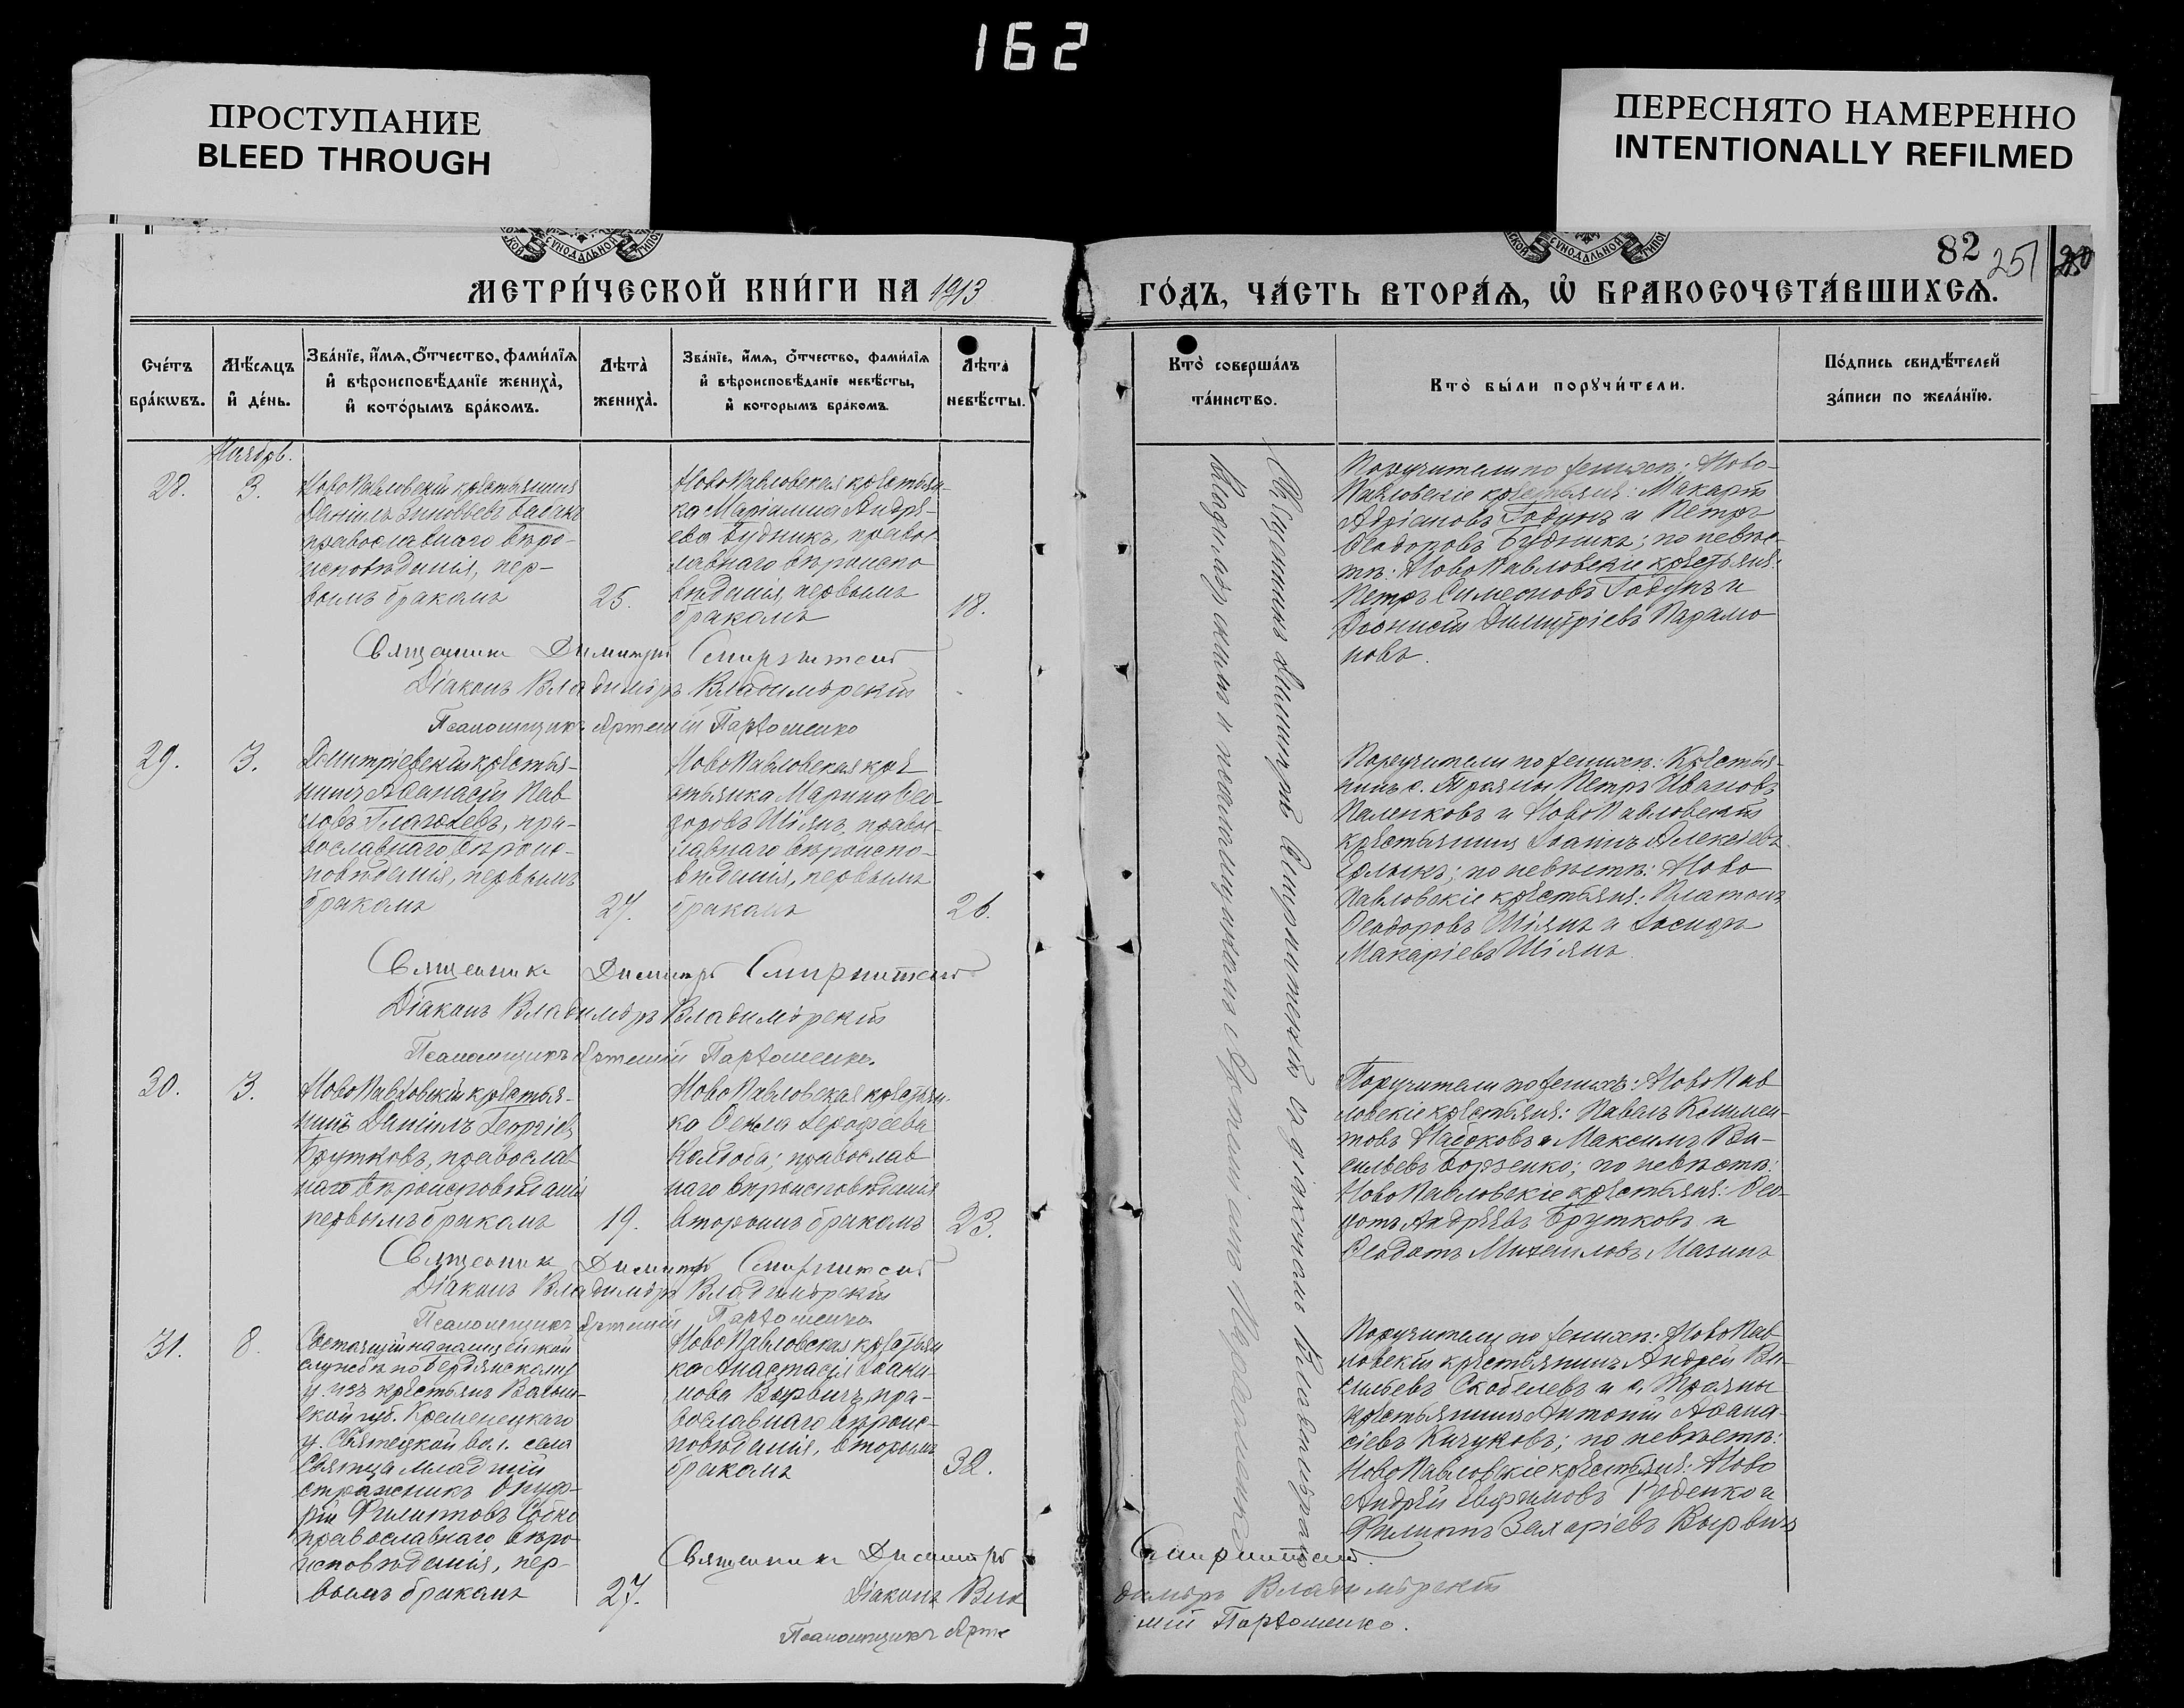 162
ПРОСТУПАНИЕ
BLEED THROUGH
ПЕРЕСНЯТО НАМЕРЕННО
INTENTIONALLY REFILMED
МЕТРИ́ЧЕСКОЙ КНИ́ГИ НА 1913
ГО́ДЪ, ЧА́СТЬ ВТОРА́Ѧ, Ѡ҆ БРАКОСОЧЕТА́ВШИХСѦ.
82 251
Сче́тъ бра́кѡвъ.
Мѣ́сѧцъ и҆ де́нь.
Зва́нїе, и҆́мѧ, ѻ҆́тчество, фами́лїѧ
и҆ вѣроисповѣ́данїе жениха̀,
и҆ кото́рымъ бра́комъ.
Лѣта̀ жениха̀.
Зва́нїе, и҆́мѧ, ѻ҆́тчество, фами́лїѧ
и҆ вѣроисповѣ́данїе невѣ́сты,
и҆ которымъ бракомъ.
Лѣта̀ невѣ́сты.
Кто̀ соверша́лъ та́инство.
Кто̀ бы́ли порꙋчи́тели.
По́дпись свидѣ́телей
за́писи по жела́нїю.
Ноябрь.
28.
3.
НовоПавловскій крестьянинъ
Даніилъ Зиновьевъ Бабакъ
православнаго вѣро-
исповѣданія, пер-
вымъ бракомъ
25.
НовоПавловская крестьян-
ка Маріамна Андре-
ева Будникъ, правос-
лавнаго вѣроиспо
вѣданія первымъ
бракомъ
18.
Поручители по женихѣ: Ново-
Павловскіе крестьяне: Макарій
Адріановъ Говунъ и Петръ
Ѳеодоровъ Будникъ; по невѣс-
тѣ: НовоПавловскіе крестьяне:
Петръ Симеоновъ Говунъ и
Діонисій Димитріевъ Парамо
новъ.
Священникъ Димитрій
Діаконъ Владиміръ Владимірскій
Псаломщикъ Артемій Пархоменко
29.
3.
Дмитріевскій крестья-
нинъ Аѳанасій Пав
ловъ Глаголевъ, пра-
вославнаго вѣроис-
повѣданія, первымъ
бракомъ
27.
НовоПавловская кре
стьянка Марина Ѳео-
дорова Шіянъ, правос-
лавнаго вѣроиспо-
вѣданія, первымъ
бракомъ
26.
Поручители по женихѣ: Крестья-
нинъ с. Трояны Петръ Ивановъ
Паленковъ и НовоПавловскій
крестьянинъ Іоаннъ Алексеевъ
по невѣстѣ: Ново
Павловскіе крестьяне: Платонъ
Ѳеодоровъ Шіянъ и Іосифъ
Макаріевъ Шіянъ.
Священникъ Димитрій
Діаконъ Владиміръ Владимірскій
Псаломщикъ Артемій Пархоменко.
30.
3.
НовоПавловскій крестья-
нинъ Даніилъ Георгіевъ
Брутковъ, православ
наго вѣроисповѣданія
первымъ бракомъ
19.
НовоПавловская крестьян-
ка
православ
наго вѣроисповѣданія
вторымъ бракомъ
23.
Поручители по женихѣ: НовоПав
ловскіе крестьяне: Павелъ Климен-
товъ Набоковъ и Максимъ Ва-
сильевъ Борзенко; по невѣстѣ:
НовоПавловскіе крестьяне: Ѳео-
Андреевъ Брутковъ и
Ѳеодотъ Михаиловъ Мазинъ
Священникъ Димитрій
Діаконъ Владиміръ Владимірскій
Псаломщикъ Артемій Пархоменко.
31.
8.
Состоящій на полицейской
службѣ по Бердянскому
у. изъ крестьянъ Волын-
ской губ. Кременецкаго
у. Святецкой вол. села
Святца младшій
стражникъ Онуф-
рій Филипповъ
православнаго вѣро
исповѣданія, пер-
вымъ бракомъ
27.
НовоПавловская крестьян
ка Анастасія Іоаки-
мова Вырвичъ, пра-
вославнаго вѣроис-
повѣданія, вторымъ
бракомъ
32.
Поручители по женихѣ: НовоПав
ловскій крестьянинъ Андрей Ва-
сильевъ Скобелевъ и с. Трояны
крестьянинъ Антоній Аѳана-
сіевъ Качуковъ; по невѣстѣ:
НовоПавловскіе крестьяне: Ново
Андрей Евфимовъ Руденко и
Филиппъ Захаріевъ Вырвичъ
Священникъ Димитрій
Діаконъ Владиміръ Владимірскій
Псаломщикъ Артемій Пархоменко.